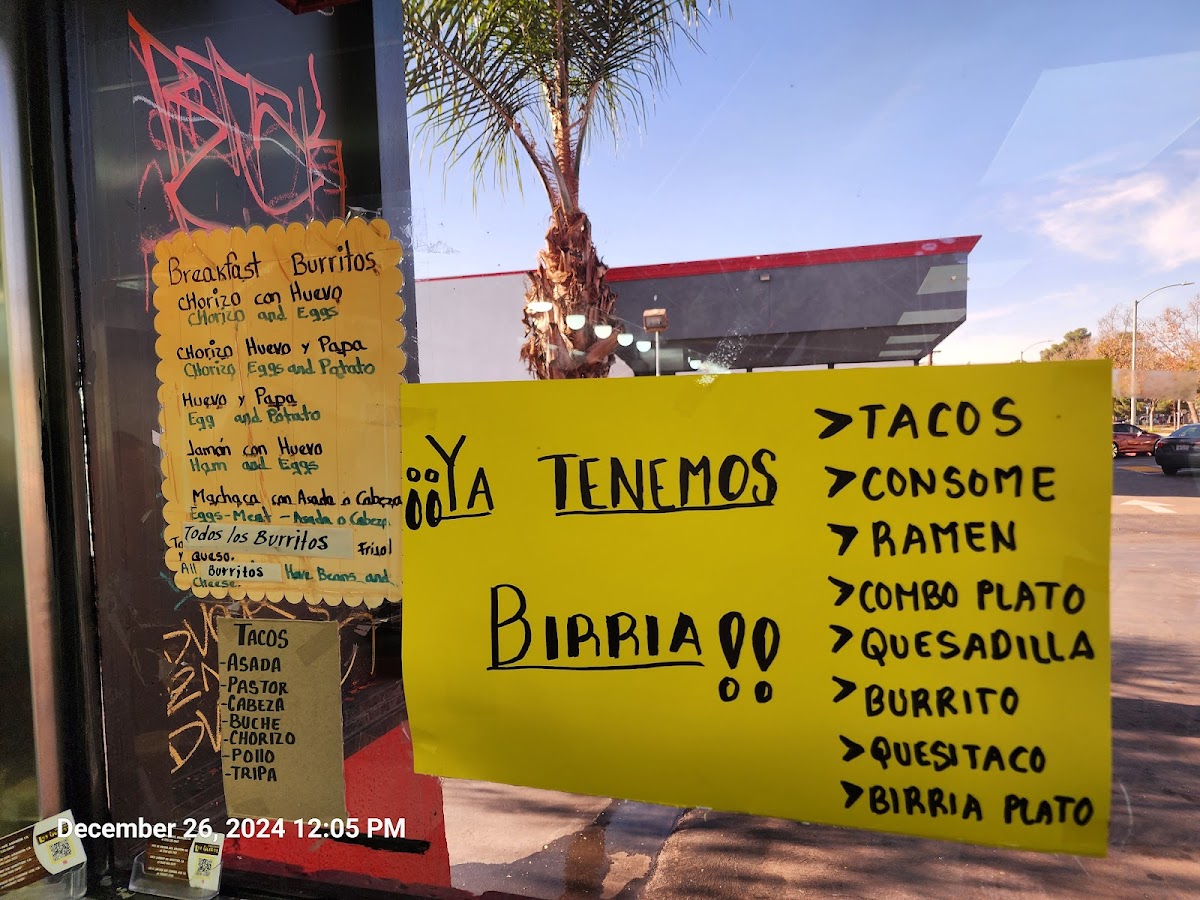 Breakfast Burritos
CHorizo con Huevo
CHorizo and Eggs
CHorizo Huevo y Papa
CHorizo Eggs and Potato
Huevo y Papa
Egg and Potato
Jamón con Huevo
Ham and Eggs
Machaca con Asada o Cabeza
Eggs-Meat-Asada o Cabeza.
Todos los Burritos Frijol
y queso.
All Burritos Have Beans and
Cheese.
TACOS
-ASADA
-PASTOR
-CABEZA
-BUCHE
-CHORIZO
-POllO
-TRIPA
¡¡YA TENEMOS
BIRRIA!!
>TACOS
>CONSOME
>RAMEN
>COMBO PLATO
>QUESADILLA
>BURRITO
>QUESITACO
>BIRRIA PLATO
December 26, 2024 12:05 PM